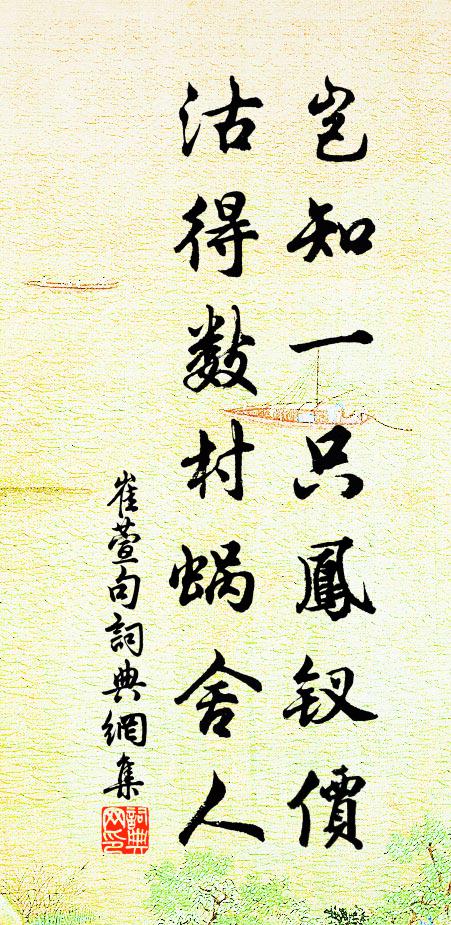 岂知一只鳳釵價
沽得数村蝸舍人
崔萱句詞典網集
詞典网印